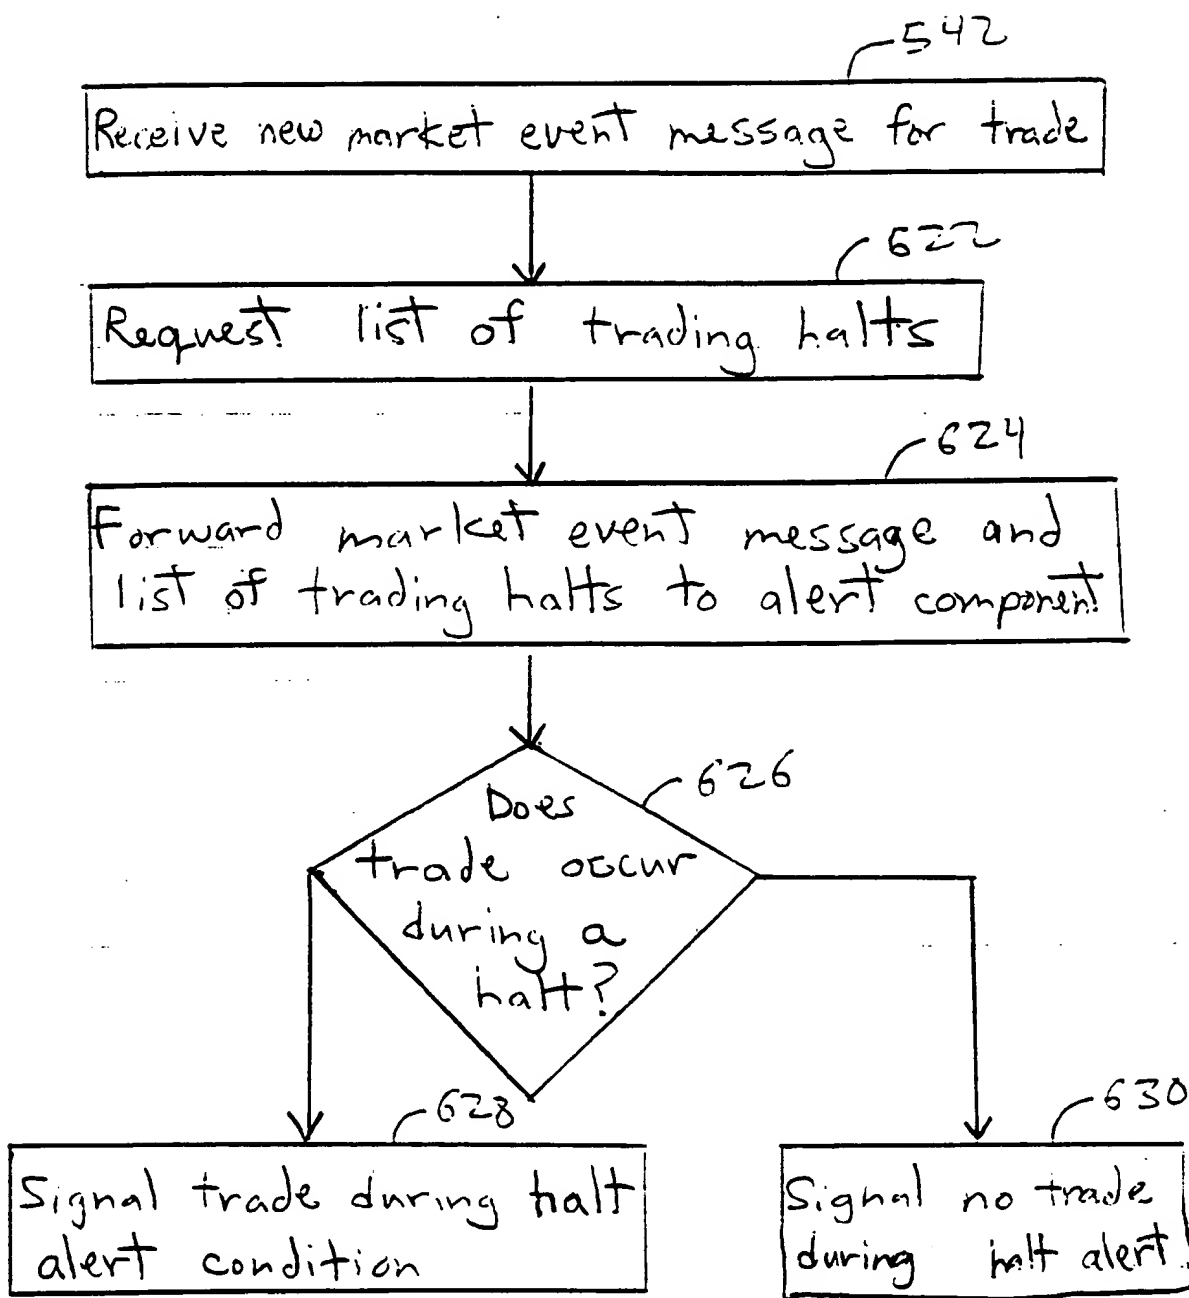 542
Receive new market event message for trade
622
Request list of trading halts
624
Forward market event message and
list of trading halts to alert component
626
Does
trade occur
during a
halt?
628
Signal trade during halt
alert condition
630
Signal no trade
during halt alert